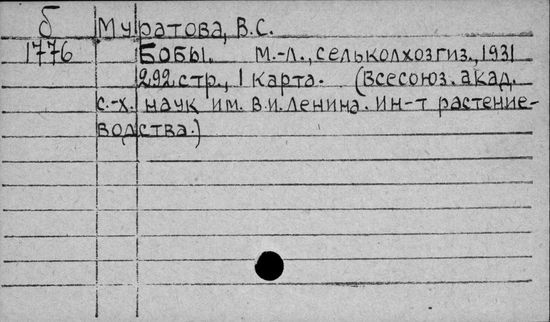 б Муратова, В.С.
1776 Бобы. М.-Л., Сельколхозгиз, 1931
292 стр., 1 карта. (Всесоюз. акад.
с.-х. наук им. В.И. Ленина. Ин-т растение-
водства.)